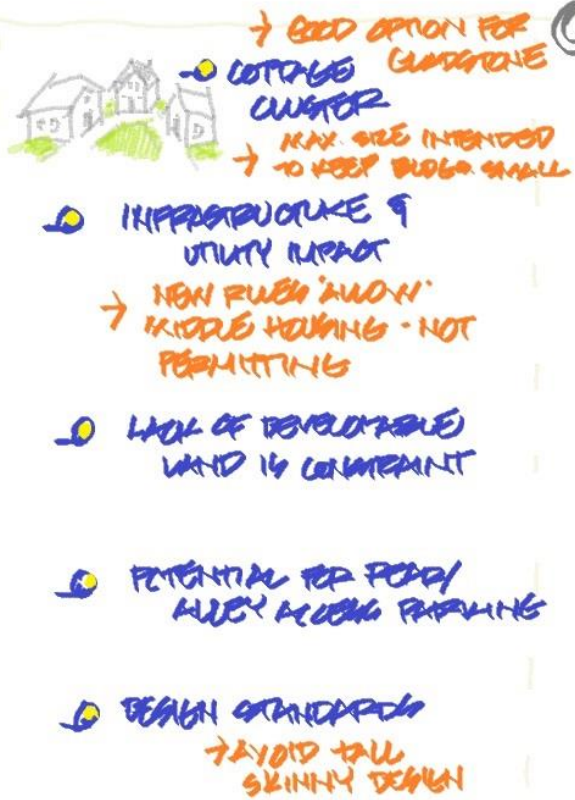 → GOOD OPTION FOR
GLADSTONE
COTTAGE
CLUSTER
→ MAX. SIZE INTENDED
TO KEEP BLDGS SMALL
INFRASTRUCTURE &
UTILITY IMPACT
→ NEW RULES 'ALLOW'
MIDDLE HOUSING - NOT
PERMITTING
LACK OF DEVELOPABLE
LAND IS CONSTRAINT
POTENTIAL FOR REAR/
ALLEY ACCESS PARKING
DESIGN STANDARDS
→ AVOID TALL
SKINNY DESIGN